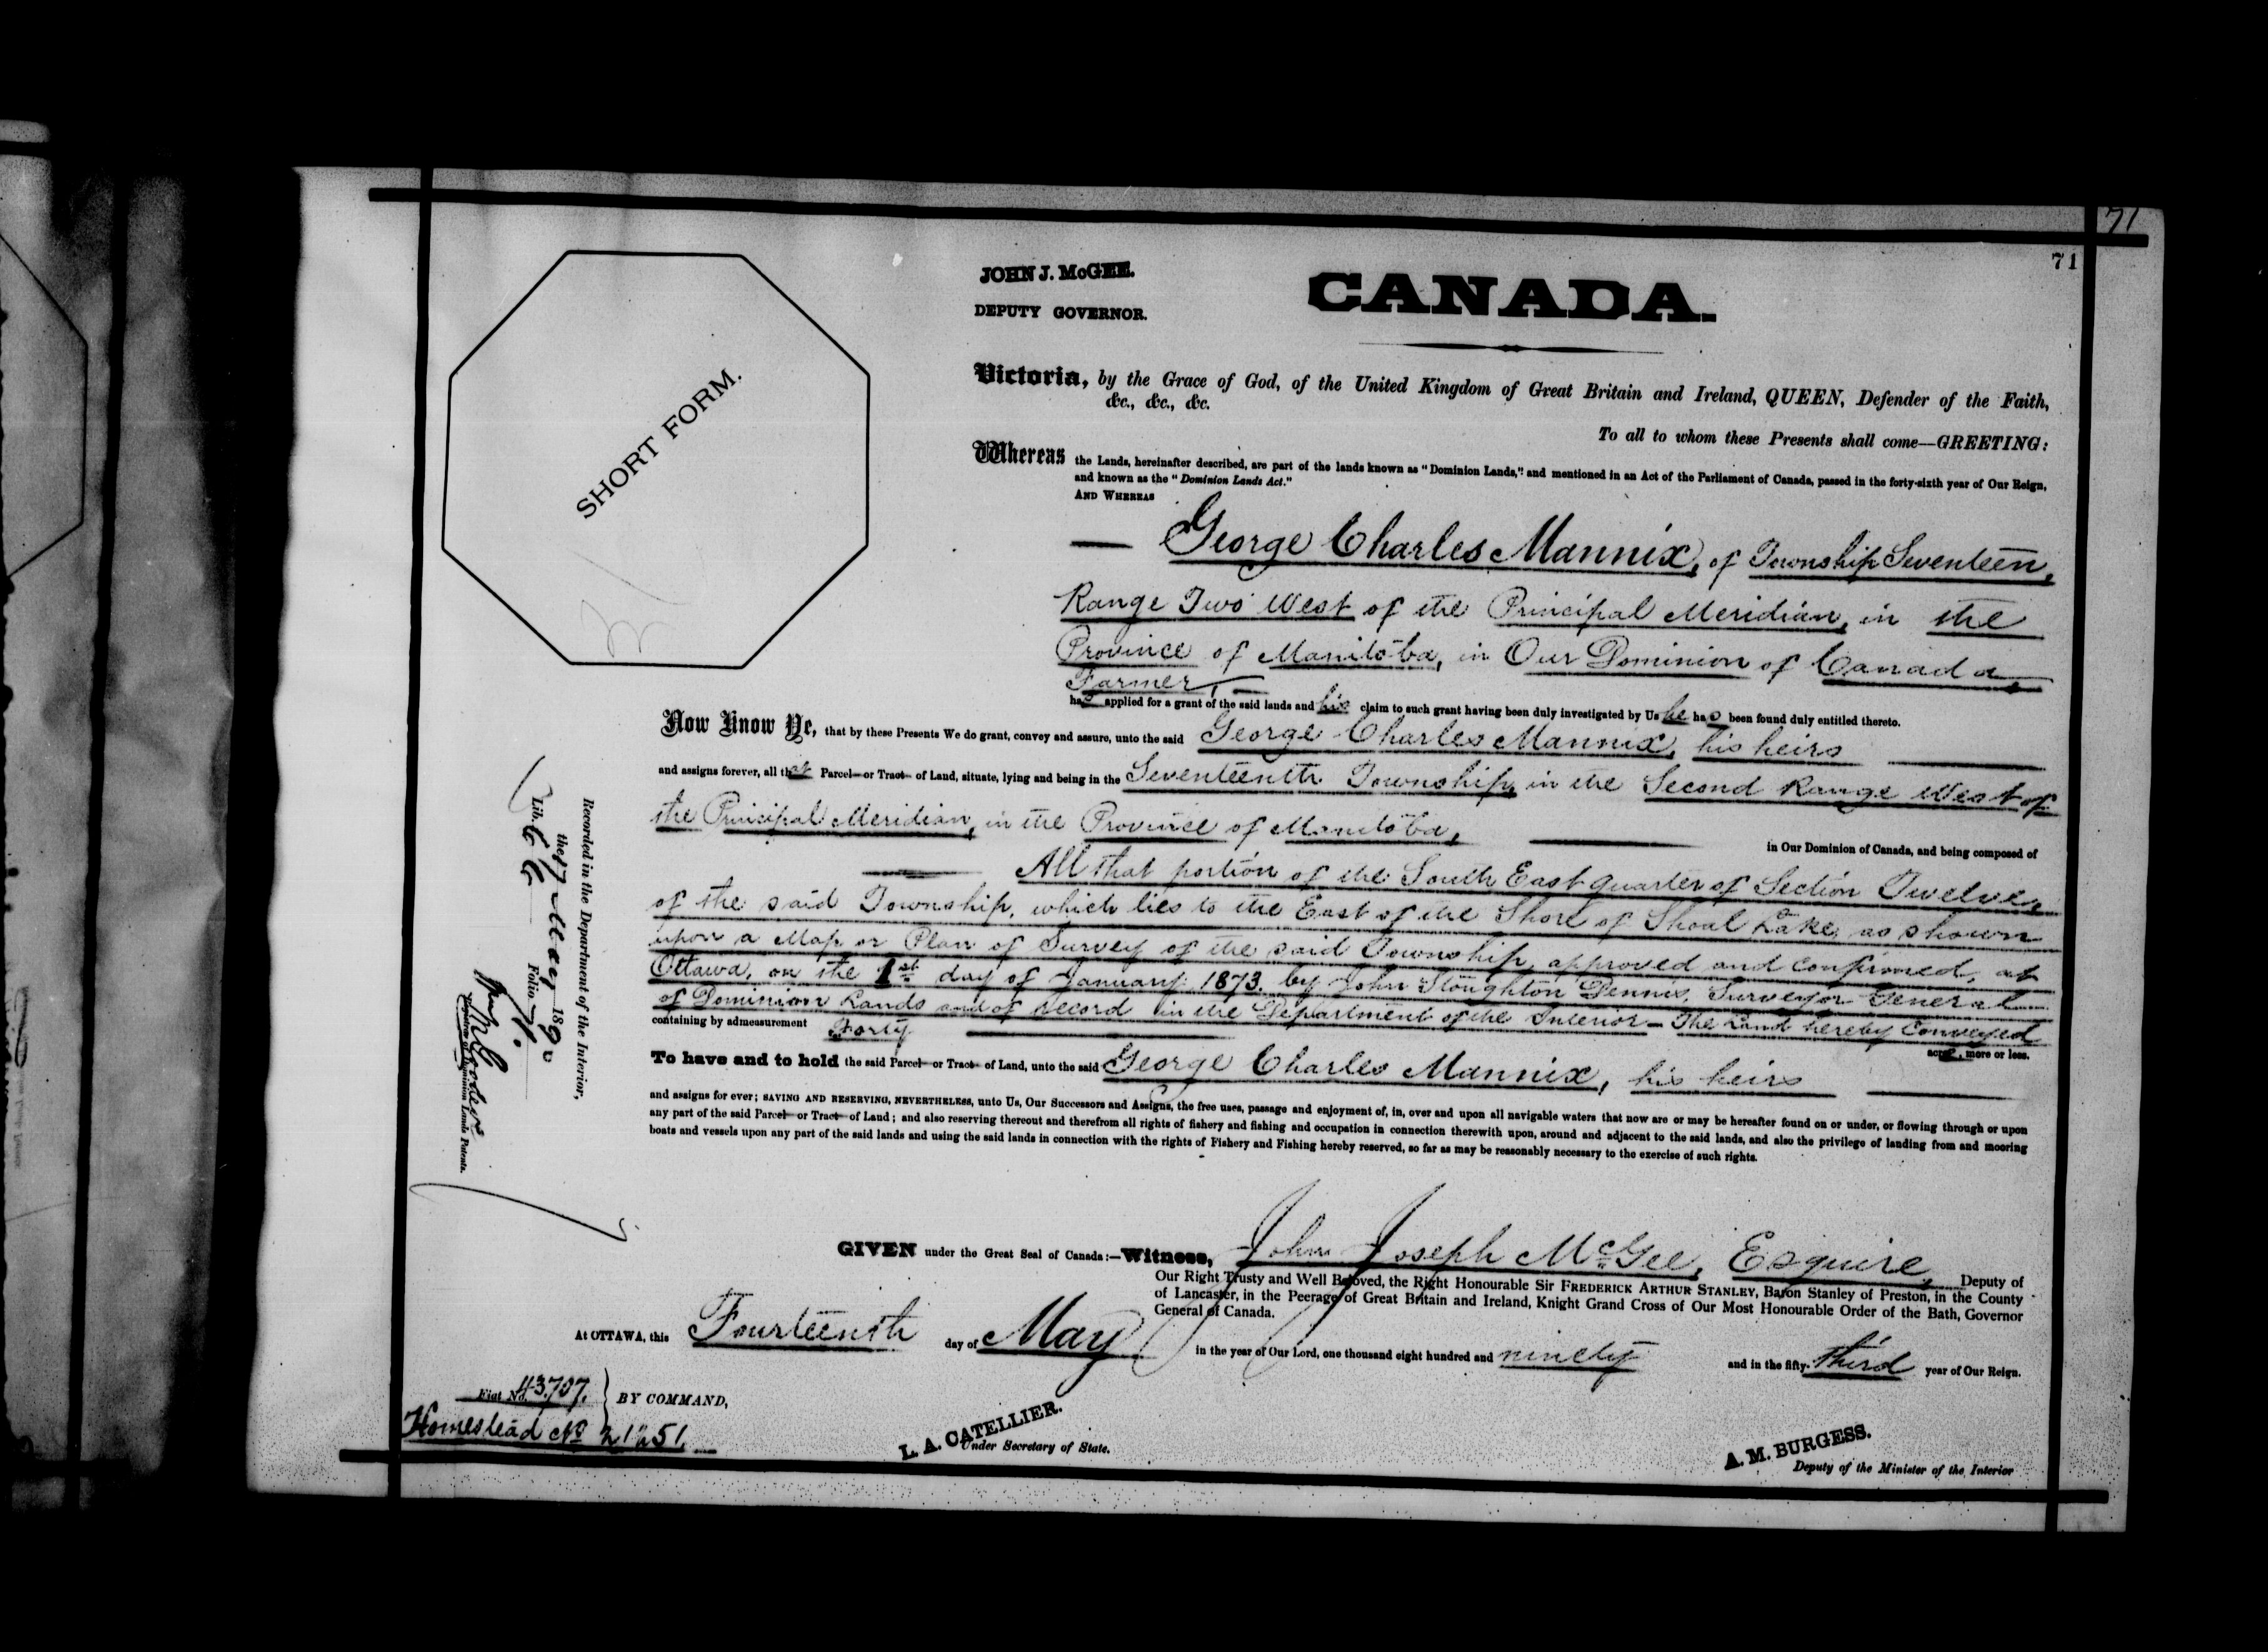 71
71
JOHN J. McGEE.
DEPUTY GOVERNOR.
CANADA.
SHORT FORM.
Victoria, by the Grace of God, of the United Kingdom of Great Britain and Ireland, QUEEN, Defender of the Faith,
&c., &c., &c.
To all to whom these Presents shall come—GREETING:
Whereas the Lands, hereinafter described, are part of the lands known as "Dominion Lands," and mentioned in an Act of the Parliament of Canada, passed in the forty-sixth year of Our Reign,
and known as the "Dominion Lands Act."
AND WHEREAS
— George Charles Mannix, of Township Seventeen,
Range Two West of the Principal Meridian, in the
Province of Manitoba, in Our Dominion of Canada,
Farmer, —
has applied for a grant of the said lands and his claim to such grant having been duly investigated by Us he has been found duly entitled thereto.
Now Know Ye, that by these Presents We do grant, convey and assure, unto the said George Charles Mannix, his heirs
and assigns forever, all that Parcel or Tract of Land, situate, lying and being in the Seventeenth Township, in the Second Range West of
the Principal Meridian, in the Province of Manitoba,
in Our Dominion of Canada, and being composed of
All that portion of the South East quarter of Section Twelve,
of the said Township, which lies to the East of the Shore of Shoal Lake, as shown
upon a Map or Plan of Survey of the said Township, approved and confirmed, at
Ottawa, on the 1st day of January 1873, by John Stoughton Dennis, Surveyor General
of Dominion Lands and of record in the Department of the Interior — The Land hereby Conveyed
containing by admeasurement Forty
acres, more or less.
To have and to hold the said Parcel or Tract of Land, unto the said George Charles Mannix, his heirs
and assigns for ever; SAVING AND RESERVING, NEVERTHELESS, unto Us, Our Successors and Assigns, the free uses, passage and enjoyment of, in, over and upon all navigable waters that now are or may be hereafter found on or under, or flowing through or upon
any part of the said Parcel or Tract of Land; and also reserving thereout and therefrom all rights of fishery and fishing and occupation in connection therewith upon, around and adjacent to the said lands, and also the privilege of landing from and mooring
boats and vessels upon any part of the said lands and using the said lands in connection with the rights of Fishery and Fishing hereby reserved, so far as may be reasonably necessary to the exercise of such rights.
Recorded in the Department of the Interior,
the 17 May 1890
Lib. 66 Folio 71
Registrar of Dominion Lands Patents.
GIVEN under the Great Seal of Canada:—Witness, John Joseph McGee, Esquire, Deputy of
Our Right Trusty and Well Beloved, the Right Honourable Sir FREDERICK ARTHUR STANLEY, Baron Stanley of Preston, in the County
of Lancaster, in the Peerage of Great Britain and Ireland, Knight Grand Cross of Our Most Honourable Order of the Bath, Governor
General of Canada.
At OTTAWA, this Fourteenth day of May in the year of Our Lord, one thousand eight hundred and ninety and in the fifty-third year of Our Reign.
Fiat No. 43707.
BY COMMAND,
Homestead No 21251.
L. A. CATELLIER.
Under Secretary of State.
A. M. BURGESS.
Deputy of the Minister of the Interior